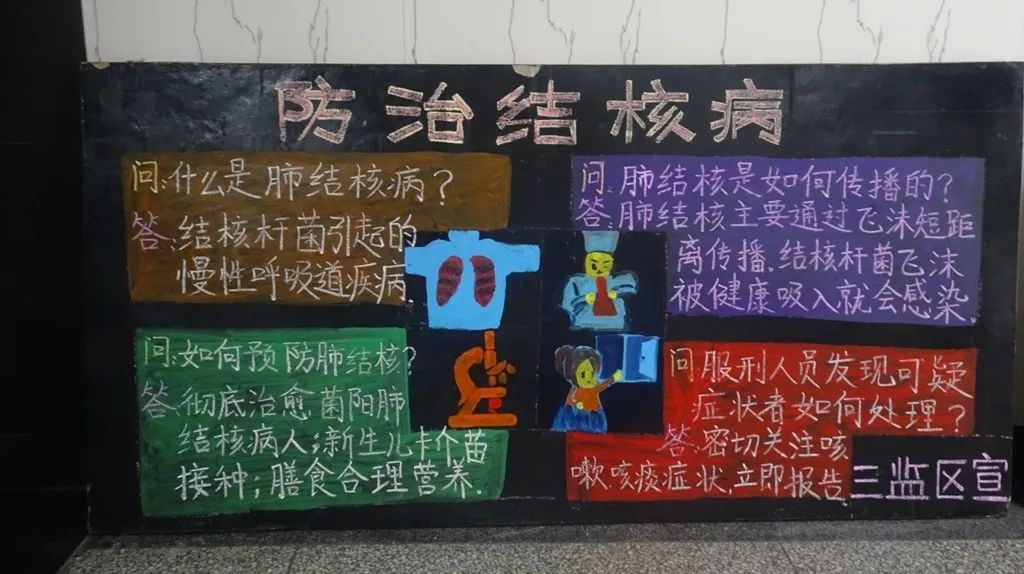 防治结核病
问:什么是肺结核病?
答:结核杆菌引起的
慢性呼吸道疾病
问:肺结核是如何传播的?
答:肺结核主要通过飞沫短距
离传播.结核杆菌飞沫
被健康吸入就会感染.
问:如何预防肺结核?
答:彻底治愈菌阳肺
结核病人;新生儿卡介苗
接种;膳食合理营养.
问服刑人员发现可疑
症状者如何处理?
答:密切关注咳
嗽咳痰症状,立即报告
三监区宣